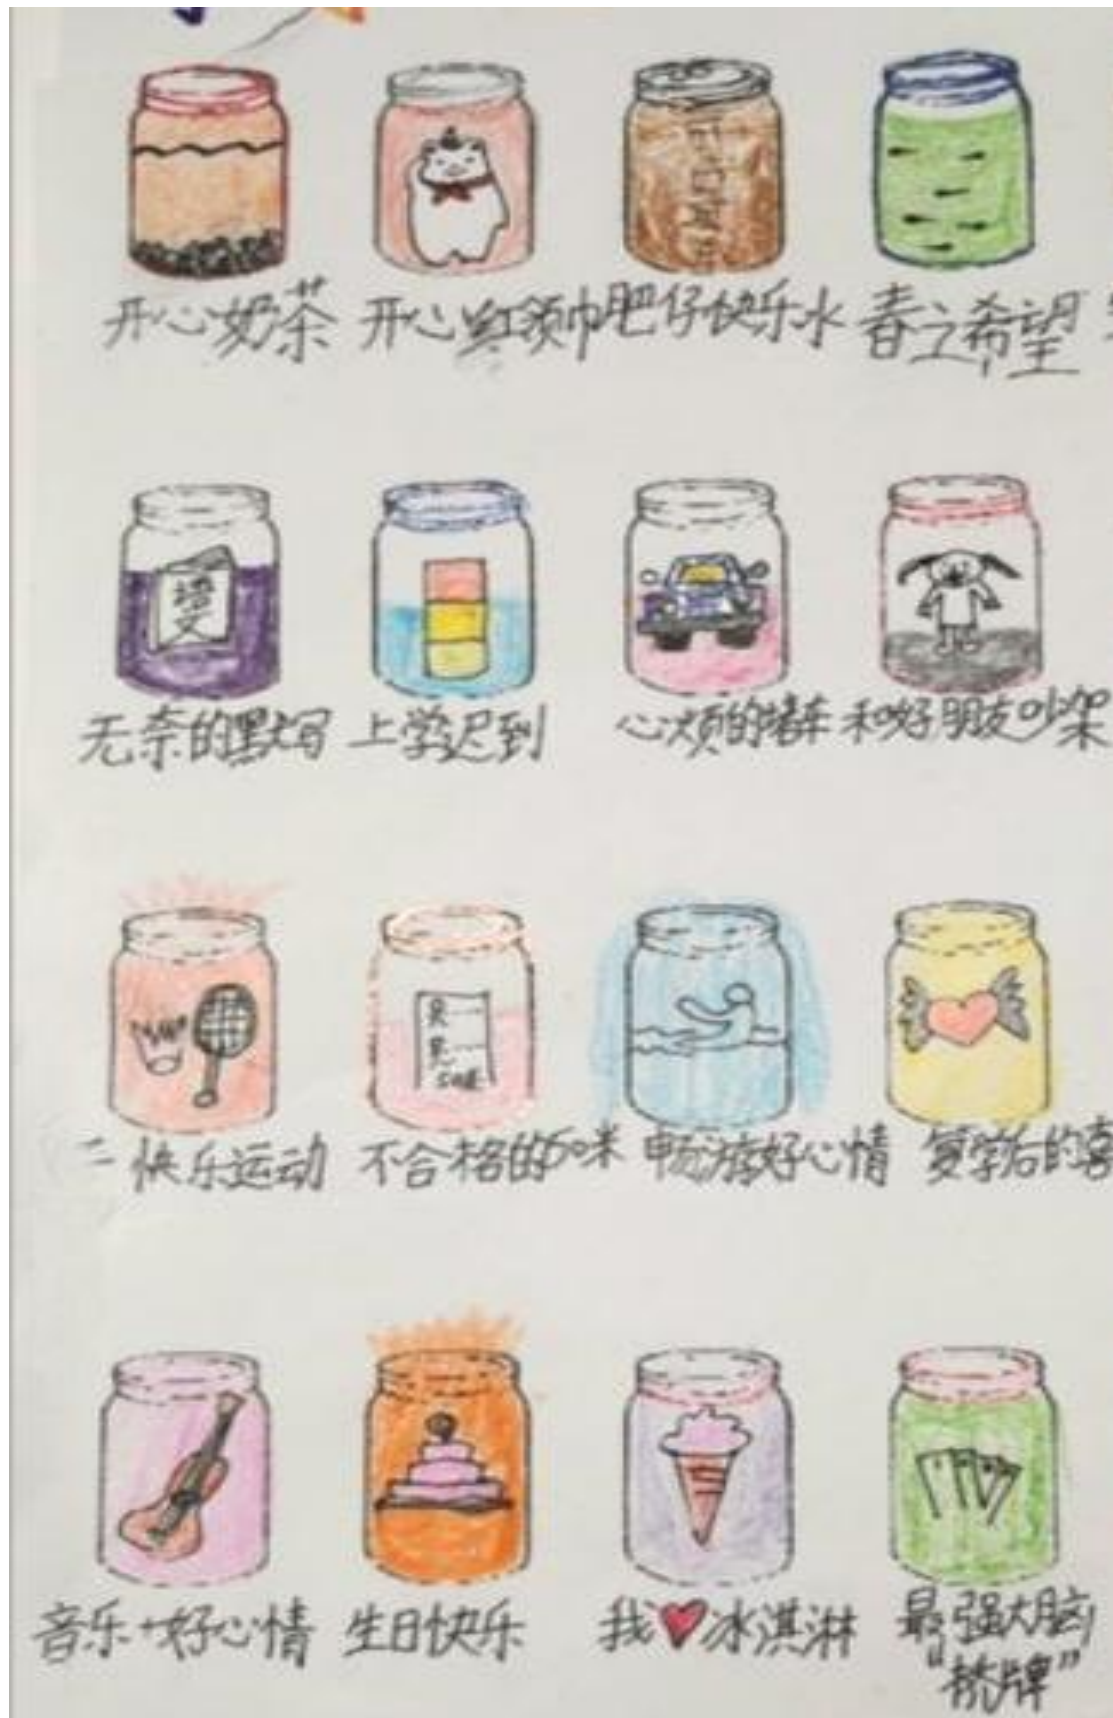 开心奶茶 开心红领巾 肥仔快乐水 春之希望
无奈的默写 上学迟到 心烦的堵车 和好朋友吵架
二 快乐运动 不合格的50米 畅游好心情 复学后的喜
音乐+好心情 生日快乐 我❤冰淇淋 最强大脑
“桥牌”